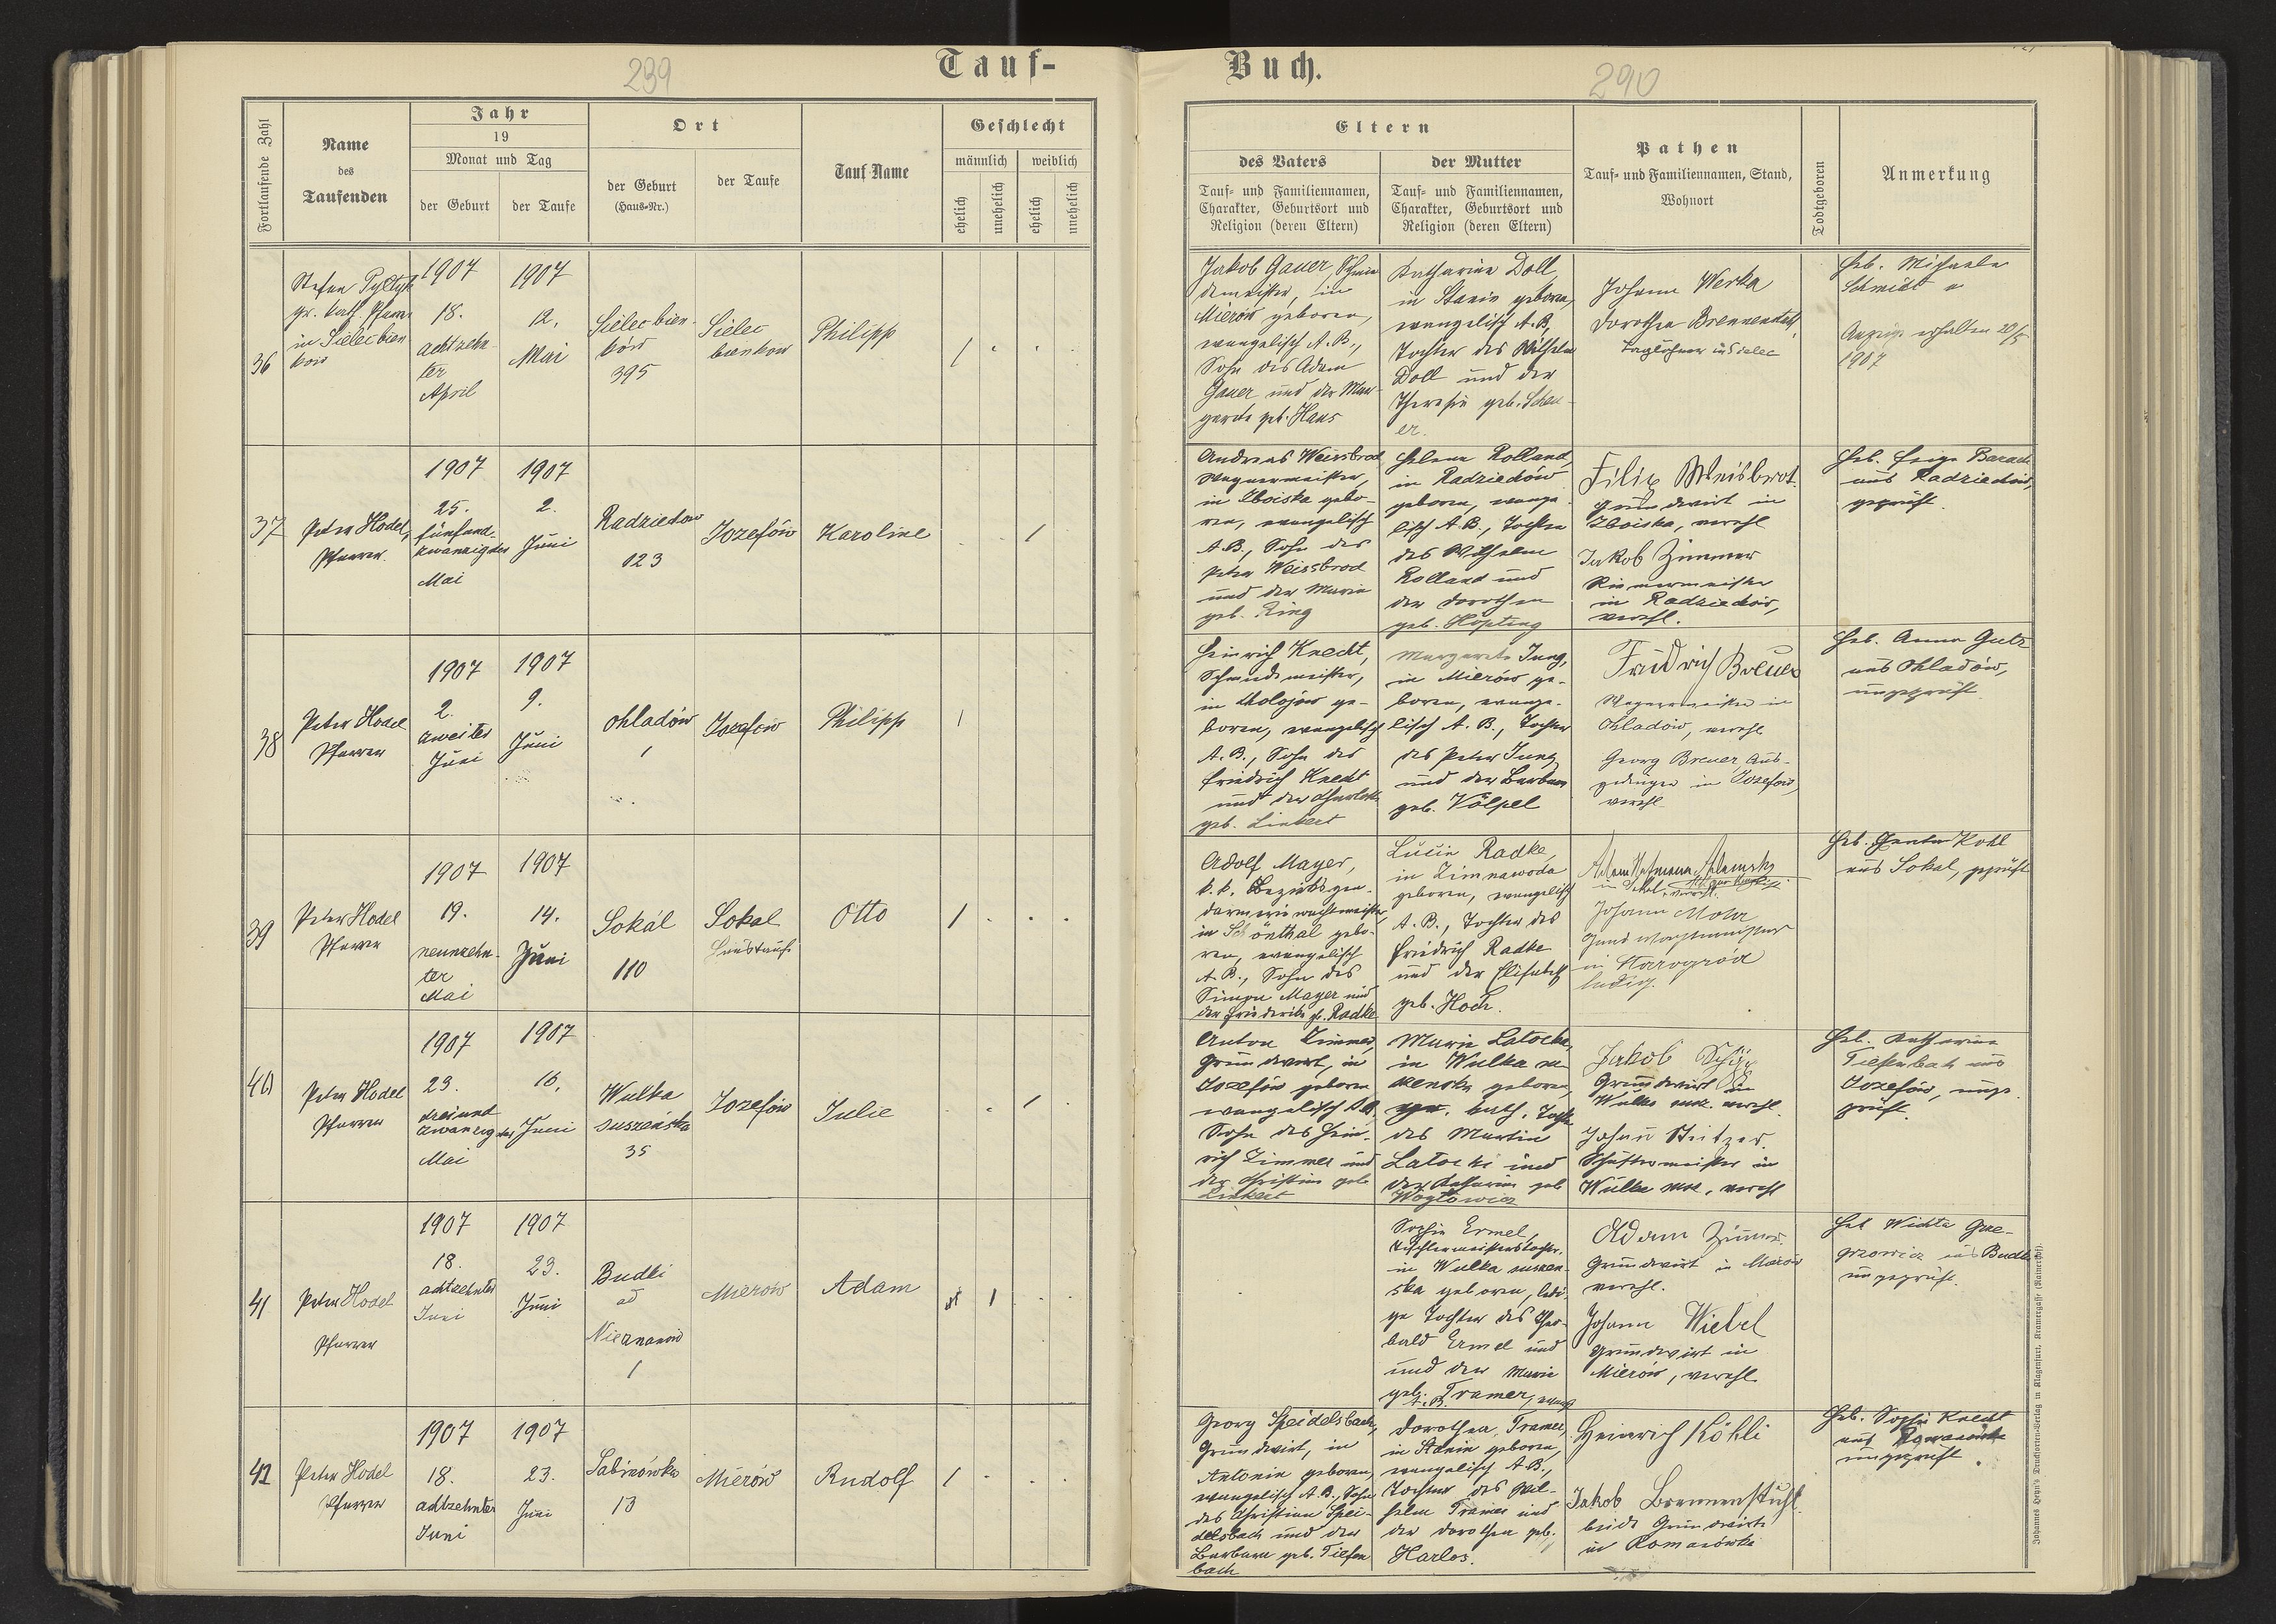 239
Tauf-
Fortlaufende Zahl
Name
des
Taufenden
Jahr
19
Monat und Tag
der Geburt
der Taufe
Ort
der Geburt
(Haus-Nr.)
der Taufe
Tauf Name
Geschlecht
männlich
weiblich
ehelich
unehelich
ehelich
unehelich
36
Stefan
gr. kath. Pfarrer
in Sielec bien
kow
1907
18.
achtzehn-
ter
April
1907
12.
Mai
Sielec bien-
ków
395
Sielec
bienkow
Philipp
1
37
Peter Hodel,
Pfarrer.
1907
25.
fünfund-
zwanzigster
Mai
1907
2.
Juni
Radziechow
123
Jozefów
Karoline
1
38
Peter Hodel
Pfarrer
1907
2.
zweiter
Juni
1907
9.
Juni
Ohladów
1
Jozefów
Philipp
1
39
Peter Hodel
Pfarrer
1907
19.
neunzehn-
ter
Mai
1907
14.
Juni
Sokal
110
Sokal
Haustaufe
Otto
1
40
Peter Hodel
Pfarrer
1907
23.
dreiund
zwanzigster
Mai
1907
16.
Juni
Wulka
suszeńska
35
Jozefów
Julie
1
41
Peter Hodel
Pfarrer
1907
18.
achtzehnter
Juni
1907
23.
Juni
Budki
ad
Nieznanow
1
Mierów
Adam
1
42
Peter Hodel
Pfarrer
1907
18.
achtzehnter
Juni
1907
23.
Juni
Sabinówka
13
Mierów
Rudolf
1
Buch.
290
Eltern
des Vaters
Tauf- und Familiennamen,
Charakter, Geburtsort und
Religion (deren Eltern)
der Mutter
Tauf- und Familiennamen,
Charakter, Geburtsort und
Religion (deren Eltern)
Pathen
Tauf- und Familiennamen, Stand,
Wohnort
Todtgeboren
Anmerkung
Jakob Gauer, Schmie
demeister, in
Mierów geboren,
evangelisch A. B.,
Sohn des Adam
Gauer und der Mar-
garete geb. Haus
Katharina Doll,
in Stanin geboren,
evangelisch A. B.,
Tochter des Wilhelm
Doll und der
Theresie geb. Scheu-
er.
Johann Werka
Dorothea Brennenstuhl,
Taglöhner in Sielec
Heb. Michaela
Schmidt
Anzeige erhalten 20/5
1907
Andreas Weissbrod
Wagnermeister,
in Zboiska gebo-
ren, evangelisch
A. B., Sohn des
Peter Weissbrod
und der Marie
geb. Ring
Helena Rolland,
in Radziechów
geboren, evange-
lisch A. B., Tochter
des Wilhelm
Rolland und
der Dorothea
geb. Höpting
Filip Weisbrot
Grundwirt in
Zboiska, verehl
Jakob Zimmer
Riemermeister
in Radziechów,
verehl.
Heb. Feige Barach
aus Radziechów,
geprüft.
Heinrich Knecht,
Schmiedmeister,
in Cholojów ge-
boren, evangelisch
A. B., Sohn des
Friedrich Knecht
und der Charlotte
geb. Linkert
Margarete Jung,
in Mierów ge-
boren, evange-
lisch A. B., Tochter
des Peter Jung
und der Barbara
geb. Völpel
Friedrich Breuer
Wagnermeister in
Ohladów, verehl
Georg Breuer, Aus-
gedinger in Jozefów,
verehl
Heb. Anna Gutz
aus Ohladów,
ungeprüft.
Adolf Mayer,
k. k. Bezirksgen-
darmeriewachtmeister,
in Schönthal gebo-
ren, evangelisch
A. B., Sohn des
Simon Mayer und
der Friederike g. Radke
Lucie Radke,
in Zimnawoda
geboren, evangelisch
A. B., Tochter des
Friedrich Radke
und der Elisabeth
geb. Hoch.
Johann Mohr
Gend. Wachtmeister
in Narogród
ledig.
Heb. Genta Kohl
aus Sokal, geprüft
Anton Zimmer,
Grundwirt, in
Jozefów geboren
evangelisch A. B.
Sohn des Hein-
rich Zimmer und
der Christine geb
Linkert
Marie Latocka,
in Wulka su-
szenska geboren,
kath. Tochter
des Martin
Latocki und
der Katharina geb
Wojtowicz
Jakob
Grundwirt in
Wulka susz. verehl.
Johann Stitzer.
Schustermeister in
Wulka susz., verehl
Heb. Katharina
Tiefenbach aus
Jozefów, unge
prüft.
Sophie Ermel,
Tischlermeisterstochter,
in Wulka suszen-
ska geboren, ledi-
ge Tochter des Theo-
bald Ermel und
und der Marie
geb. Tramer, evang
A. B.
Adam Zimmer.
Grundwirt in Mierów
verehl.
Johann Wiebel
Grundwirt in
Mierów, verehl
Heb Wichta Grze-
grzowicz aus Budki
ungeprüft.
Georg Speidelsbach,
Grundwirt, in
Antonin geboren,
evangelisch A. B., Sohn
des Christian Spei-
delsbach und der
Barbara geb. Tiefen
bach
Dorothea Tramer,
in Stanin geboren,
evangelisch A. B.,
Tochter des Wil-
helm Tramer und
der Dorothea geb.
Harlos.
Heinrich Köhli
Jakob Brennenstuhl
beide Grundwirte
in Romanówka
Heb. Sophie Knecht
aus Romanówka
ungeprüft.
Johannes Heyn's Drucksorten-Verlag in Klagenfurt, Kramergasse (Rainerhof).